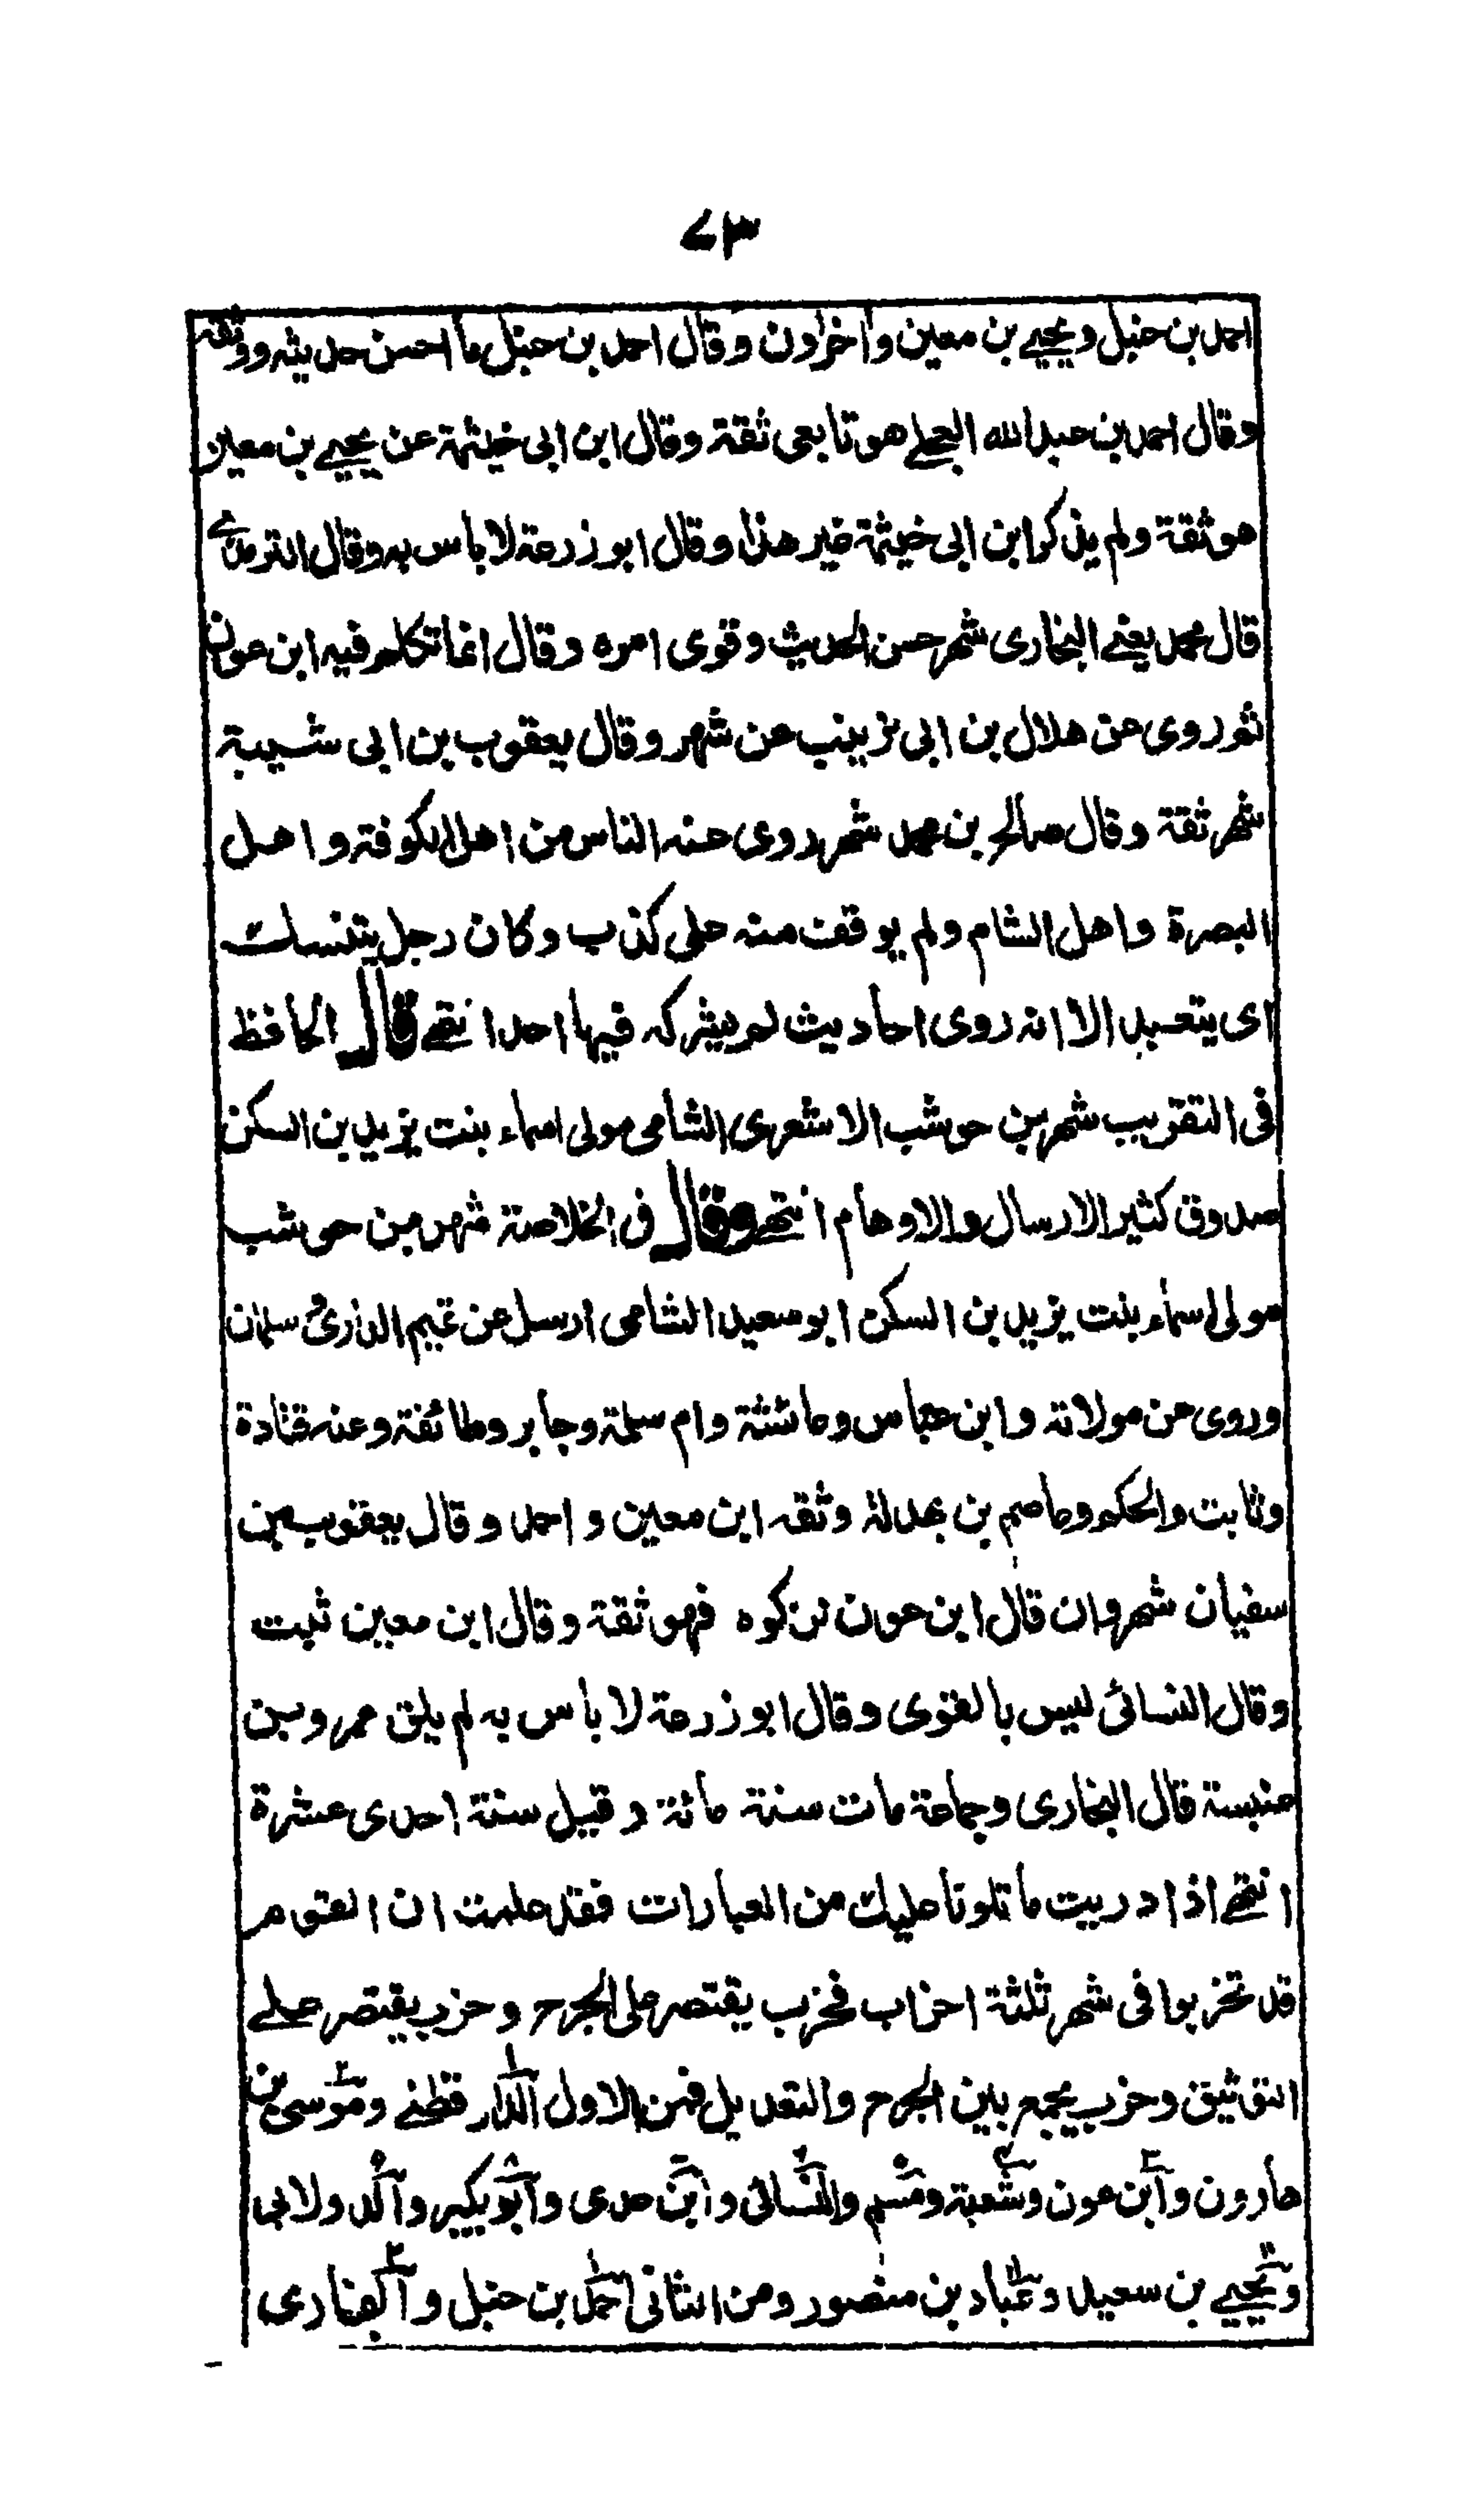 ٧٣
احمد بن حنبل ويحيے بن معين واٰخرون وقال احمد بن حنبل ما احسن حديثه ووثقه
وقال احمد بن عبد الله العجلے هو تابعى ثقة وقال ابن ابى خيثمة عن يحيے بن معين
هو ثقة ولم يذكر ابن ابى خيثمة غير هذا وقال ابو زرعة لا باس به وقال الترمذے
قال محمد يعنے البخارى شهر حسن الحديث وقوى امره وقال انما تكلم فيه ابن عون
ثم روى عن هلال بن ابى زينب عن شهر وقال يعقوب بن ابى شيبة
شهر ثقة وقال صالح بن محمد شهر روى عنه الناس من اهل الكوفة و اهل
البصرة واهل الشام ولم يوقف منه على كذب وكان رجل يتنسك
اى يتعبد الا انه روى احاديث لم يشركه فيها احد انتهے قال الحافظ
فى التقريب شهر بن حوشب الاشعرى الشامى مولى اسماء بنت يزيد بن السكن
صدوق كثير الارسال والاوهام انتهے وقال فى الخلاصة شهر بن حوشب
مولى اسماء بنت يزيد بن السكن ابو سعيد الشامى ارسل عن تميم الدارى وسلمان
وروى عن مولاته وابن عباس وعائشة وام سلمة وجابر وطائفة وعنه قتادة
وثابت والحكم وعاصم بن بهدلة وثقه ابن معين و احمد وقال يعقوب بن
سفيان شهر وان قال ابن عون نزكوه فهو ثقة وقال ابن معين ثبت
وقال النسائى ليس بالقوى وقال ابو زرعة لا بأس به لم يلق عمرو بن
عنبسة قال البخارى وجماعة مات سنة مائة وقيل سنة احدى عشرة
انتهے اذا دريت ما تلونا عليك من العبارات فقد علمت ان القوم
قد تحزبوا فى شهر ثلثة احزاب فحزب يقتصر على الجرح وحزب يقتصر علے
التوثيق وحزب يجمع بين الجرح والتعديل فمن الاول الدار قطنے وموسى بن
هارون وابن عون وشعبة ومسلم والنسائى وابن عدى وابو بكير والدولابى
ويحيے بن سعيد وعباد بن منصور ومن الثانى احمد بن حنبل والبخارى